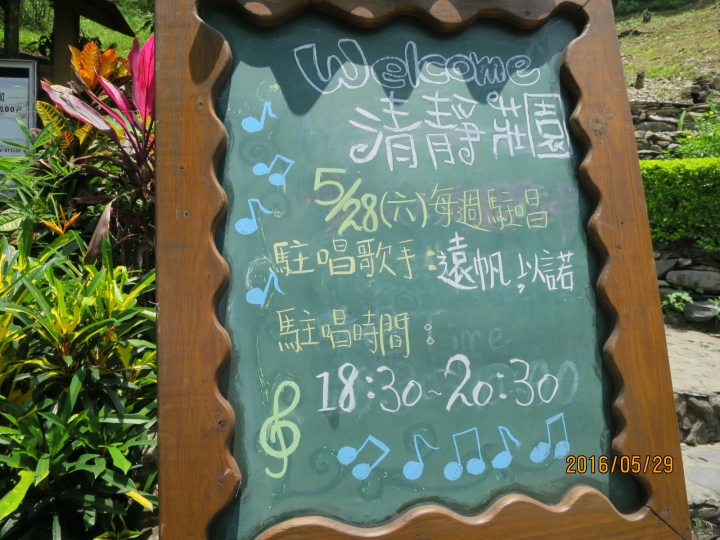 Welcome
清靜莊園
5/28(六)每週駐唱
駐唱歌手:遠帆,以諾
駐唱時間:
18:30~20:30
2016/05/29